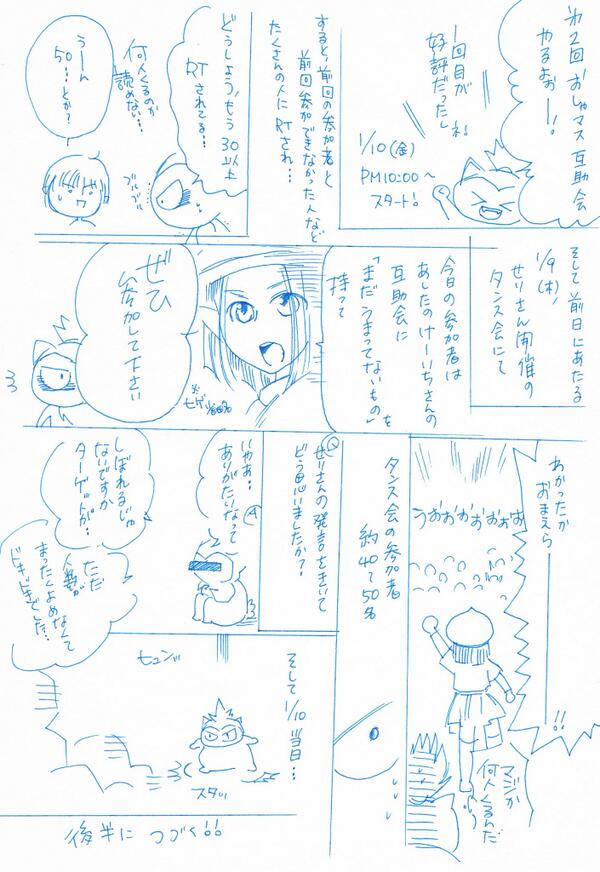 第2回おしゃマス互助会
やるよぉー!
1回目が
好評だったしネ!
1/10(金)
PM10:00〜
スタート!
すると、前回の参加者と
前回参加できなかった人など
たくさんの人にRTされ…
どうしよう!もう30以上
RTされてる…
ブルブル
何人くるのか
読めない…
うーん
50…とか?
そして前日にあたる
1/9(木)
せりさん開催の
タンス会にて
今日の参加者は
あしたのけーいちさんの
互助会に
「まだうまってないもの」を
持って
ぜひ
参加して下さい
わかったか
おまえらー
!!
うおぉおぉおおぉ
マジか
何人くるんだ
タンス会の参加者
約40〜50名
Q
せりさんの発言をきいて
どう思いましたか?
A
いやぁ…
ありがたいなって
しぼれるじゃ
ないですか
ターゲットが…
ただ
人数が
まったくよめなくて
ドキドキでした…
そして1/10当日…
ヒュンッ
スタッ
後半につづく!!